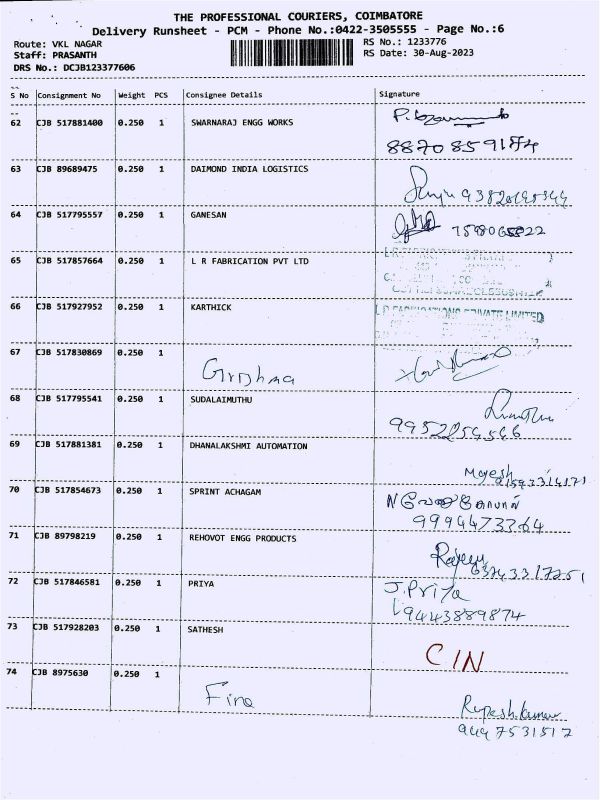 THE PROFESSIONAL COURIERS, COIMBATORE
Delivery Runsheet - PCM - Phone No.:0422-3505555 - Page No.:6
Route: VKL NAGAR
RS No.: 1233776
Staff: PRASANTH
RS Date: 30-Aug-2023
DRS No.: DCJB123377606
S No Consignment No Weight PCS Consignee Details Signature
62 CJB 517881400 0.250 1 SWARNARAJ ENGG WORKS
8870859174
63 CJB 89689475 0.250 1 DAIMOND INDIA LOGISTICS
64 CJB 517795557 0.250 1 GANESAN
65 CJB 517857664 0.250 1 L R FABRICATION PVT LTD
66 CJB 517927952 0.250 1 KARTHICK
PRIVATE LIMITED
67 CJB 517830869 0.250 1
68 CJB 517795541 0.250 1 SUDALAIMUTHU
69 CJB 517881381 0.250 1 DHANALAKSHMI AUTOMATION
70 CJB 517854673 0.250 1 SPRINT ACHAGAM
9994473264
71 CJB 89798219 0.250 1 REHOVOT ENGG PRODUCTS
72 CJB 517846581 0.250 1 PRIYA J.Priya
9443889874
73 CJB 517928203 0.250 1 SATHESH CIN
74 CJB 8975630 0.250 1 Fine
Rupesh kumar
9447531517